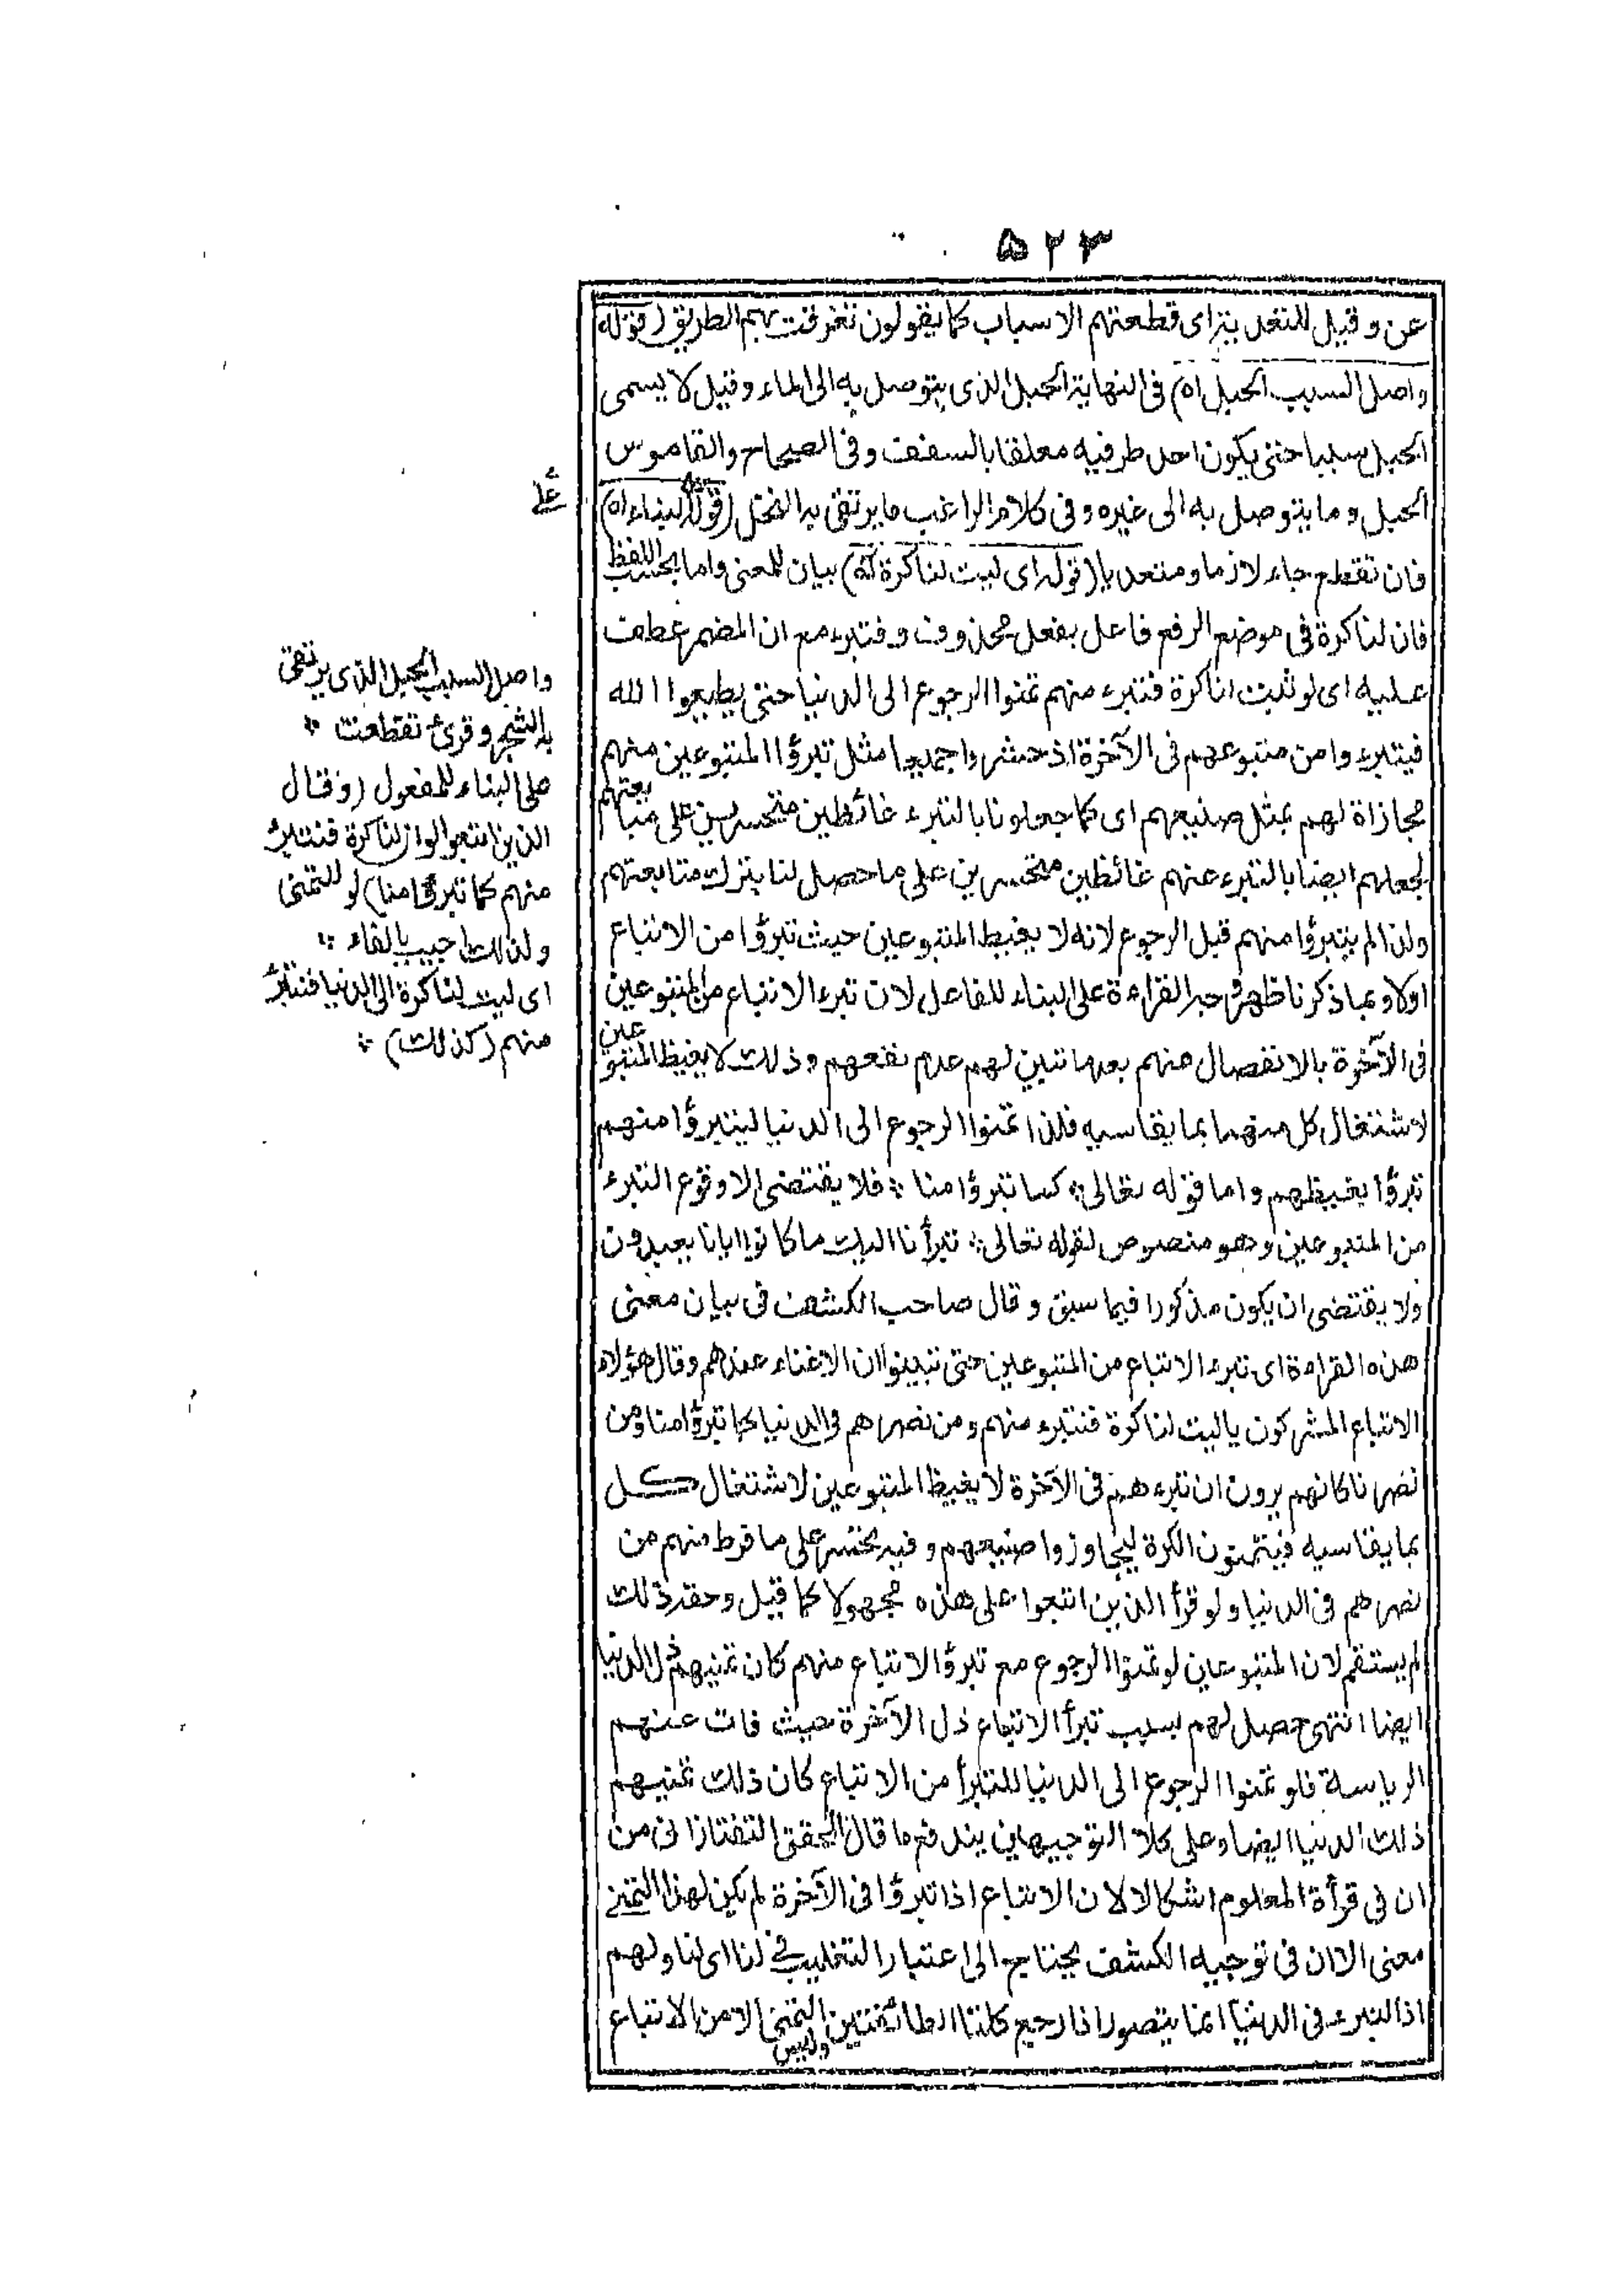 ٥٢٣
عن وقيل للتعدية اى قطعتهم الاسباب كما يقولون تفرقت بهم الطريق (قوله
واصل السبب الحبل اه) فى النهاية الحبل الذى يتوصل به الى الماء وقيل لا يسمى
الحبل سببا حتى يكون احد طرفيه معلقا بالسقف وفى الصحاح والقاموس
الحبل وما يتوصل به الى غيره وفى كلام الراغب ما يرتقى به النخل (قوله على البناء اه)
فان تقطع جاء لازما ومتعديا (قوله اى ليت لنا كرة اه) بيان للمعنى واما بحسب اللفظ
فان لنا كرة فى موضع الرفع فاعل بفعل محذوف وفنتبرء مع ان المضمر عطف
عليه اى لو ثبت ان لنا كرة فنتبرء منهم تمنوا الرجوع الى الدنيا حتى يطيعوا الله
فيتبرء وا من متبوعهم فى الآخرة اذ حشروا جميعا مثل تبرؤا المتبوعين منهم
مجازاة لهم بمثل صنيعهم اى كما جعلونا بالتبرء غائظين متحسرين على متابعتهم
نجعلهم ايضا بالتبرء عنهم غائظين متحسرين على ما حصل لنا بترك متابعتهم
ولذا لم يتبرؤا منهم قبل الرجوع لانه لا يغيظ المتبوعين حيث تبرؤا من الاتباع
اولا وبما ذكرنا ظهر وجه القراءة على البناء للفاعل لان تبرء الاتباع من المتبوعين
فى الآخرة بالانفصال منهم بعد ما تبين لهم عدم نفعهم وذلك لا يغيظ المتبوعين
لاشتغال كل منهما بما يقاسيه فلذا تمنوا الرجوع الى الدنيا ليتبرؤا منهم
تبرؤا يغيظهم واما قوله تعالى ۞ كما تبرؤا منا ۞ فلا يقتضى الا وقوع التبرء
من المتبوعين وهو منصوص لقوله تعالى ۞ تبرأنا اليك ما كانوا ايانا يعبدون
ولا يقتضى ان يكون مذكورا فيما سبق وقال صاحب الكشف فى بيان معنى
هذه القراءة اى تبرء الاتباع من المتبوعين حتى تبينوا ان لا غناء عندهم وقال هؤلاء
الاتباع المشركون يا ليت لنا كرة فنتبرء منهم ومن نصرهم فى الدنيا كما تبرؤا منا ومن
نصرنا كانهم يرون ان تبرء هم فى الآخرة لا يغيظ المتبوعين لاشتغال كل
بما يقاسيه فيتمنون الكرة ليجاوزوا صنيعهم وفيه تحسر على ما فرط منهم من
نصرهم فى الدنيا ولو قرأ الذين اتبعوا على هذه مجهولا كما قيل وحقر ذلك
لم يستقم لان المتبوعين لو تمنوا الرجوع مع تبرؤ الاتباع منهم كان تمنيهم ذل الدنيا
ايضا انتهى حصل لهم بسبب تبرأ الاتباع ذل الآخرة حيث فات عنهم
الرياسة فلو تمنوا الرجوع الى الدنيا للتبرأ من الاتباع كان ذلك تمنيهم
ذلك الدنيا ايضا وعلى كلا التوجيهين يندفع ما قال المحقق التفتازانى من
ان فى قرأة المعلوم اشكالا لان الاتباع اذا تبرؤا فى الآخرة لم يكن لهذا التمنى
معنى الا ان فى توجيه الكشف يحتاج الى اعتبار التغليب فى لنا اى لنا ولهم
اذا التبرء فى الدنيا انما يتصور اذا رجع كلتا الطائفتين وليس التمنى الا من الاتباع
واصل السبب الحبل الذى يرتقى
به الشجر وقرئ تقطعت ۞
على البناء للمفعول (وقال
الذين اتبعوا لو ان لنا كرة فنتبرئ
منهم كما تبرؤا منا) لو للتمنى
ولذلك اجيب بالفاء ۞
اى ليت لنا كرة الى الدنيا فنتبرئ
منهم (كذلك) ۞